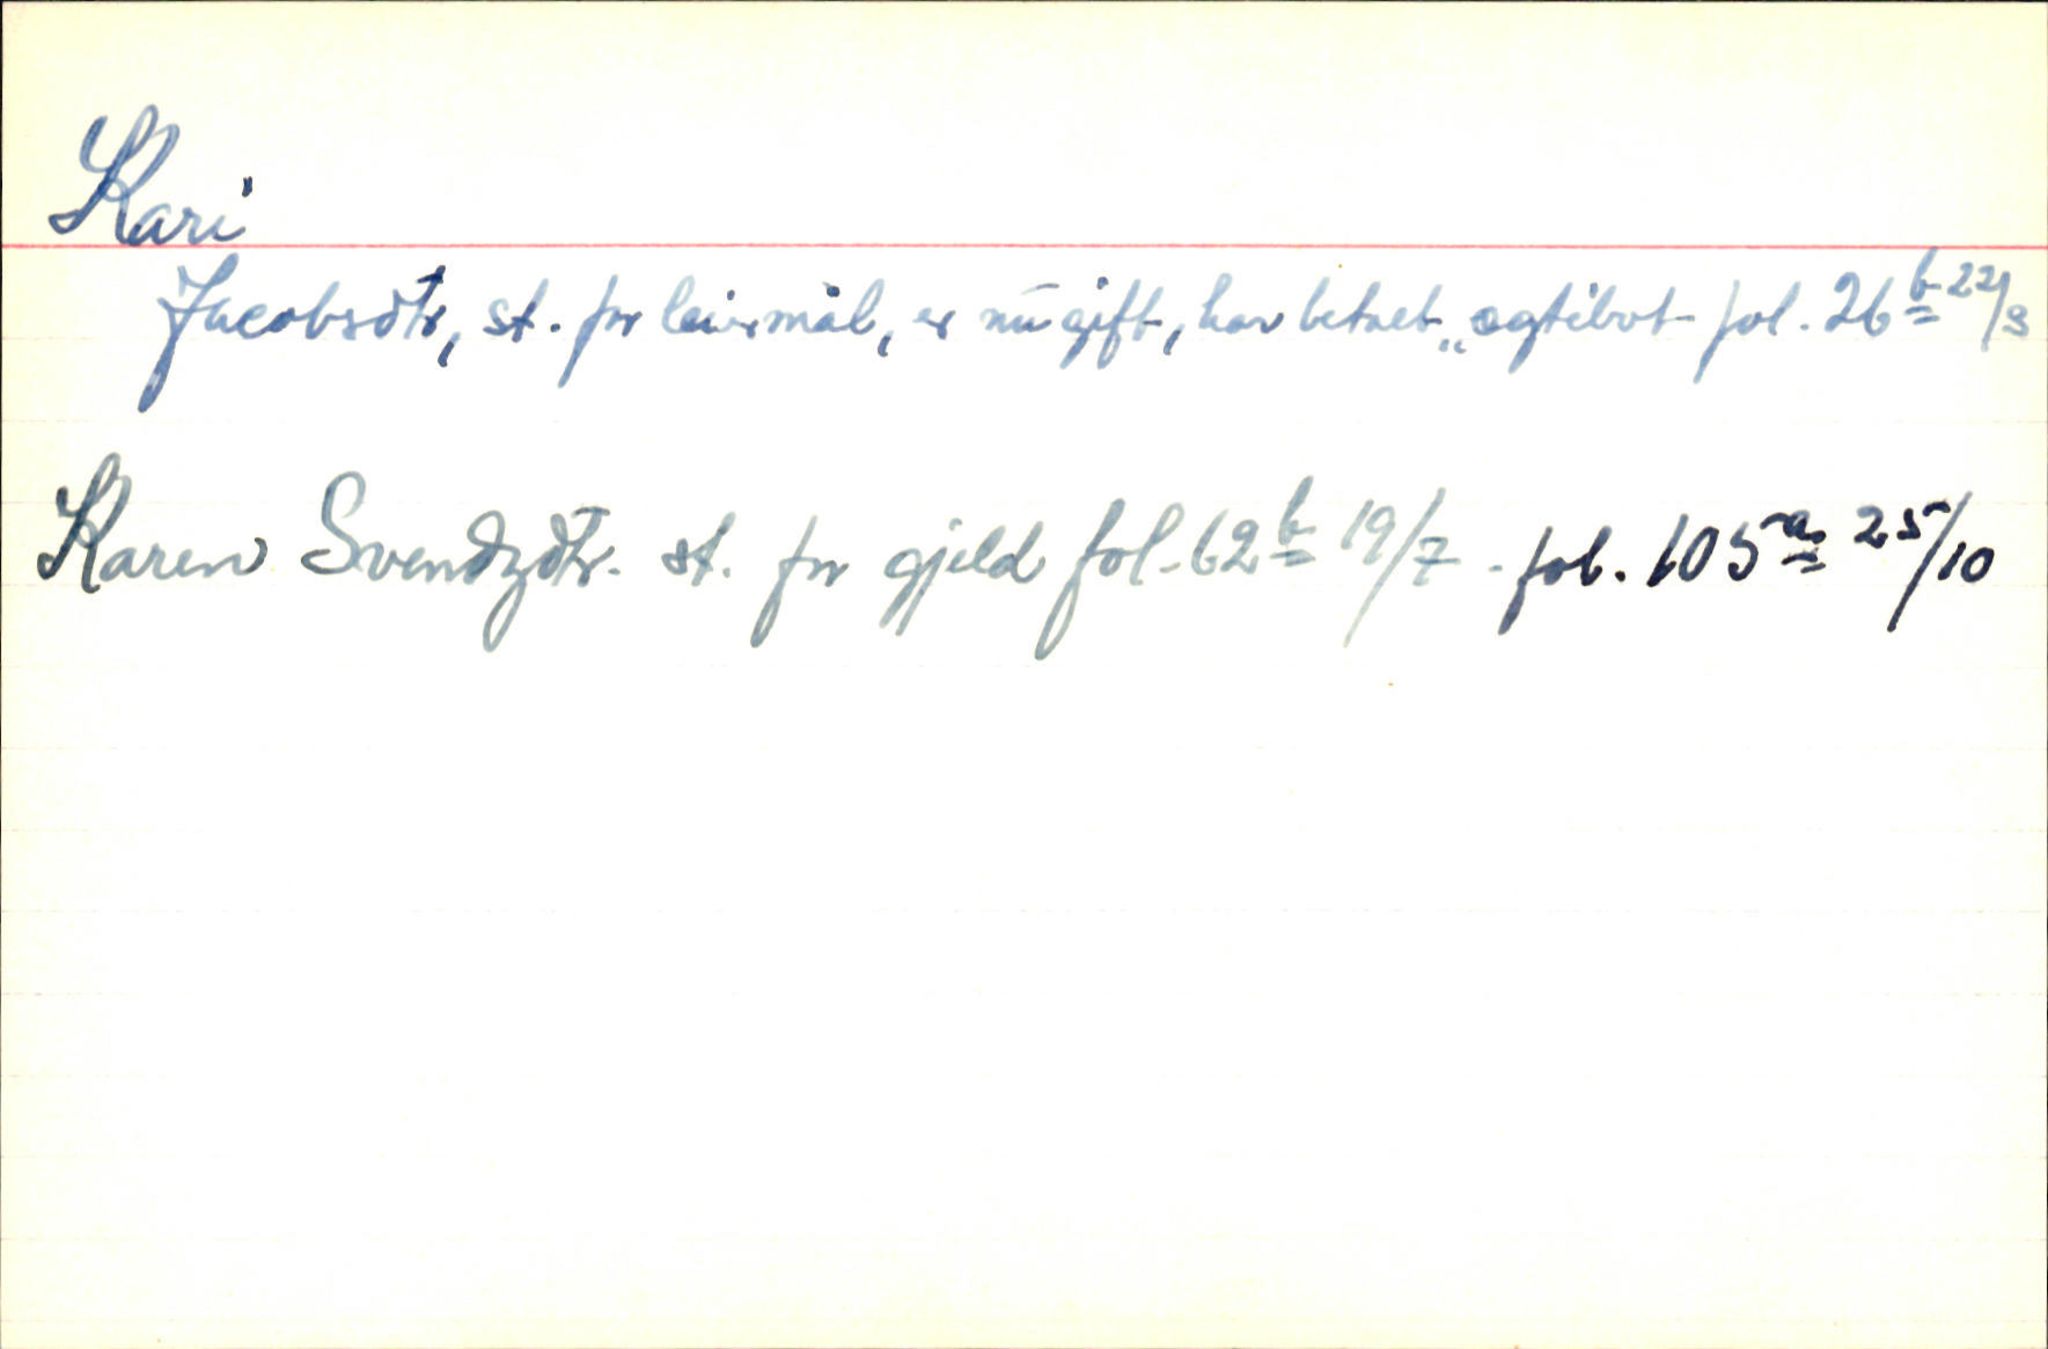 Kari
Jacobsdtr, st. for leiermål, er nu gift, har betalt „ægtebot fol. 26b 22/3
Karen Svendzdtr. st. for gjeld fol. 62b 19/7 - fol. 105a 25/10